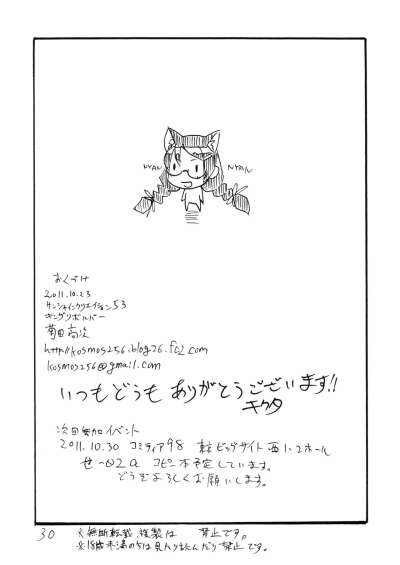 NYAN NYAN
おくづけ
2011.10.23
サンシャインクリエイション53
キングリボルバー
菊田高次
http://kosmos256.blog26.fc2.com
kosmos256@gmail.com
いつもどうもありがとうございます!!
キクタ
次回参加イベント
2011.10.30 コミティア98 東京ビッグサイト 西1・2ホール
せ-02a コピー本予定しています。
どうぞよろしくお願いします。
30 ※無断転載、複製は 禁止です。
※18歳未満の方は見たり読んだり禁止です。